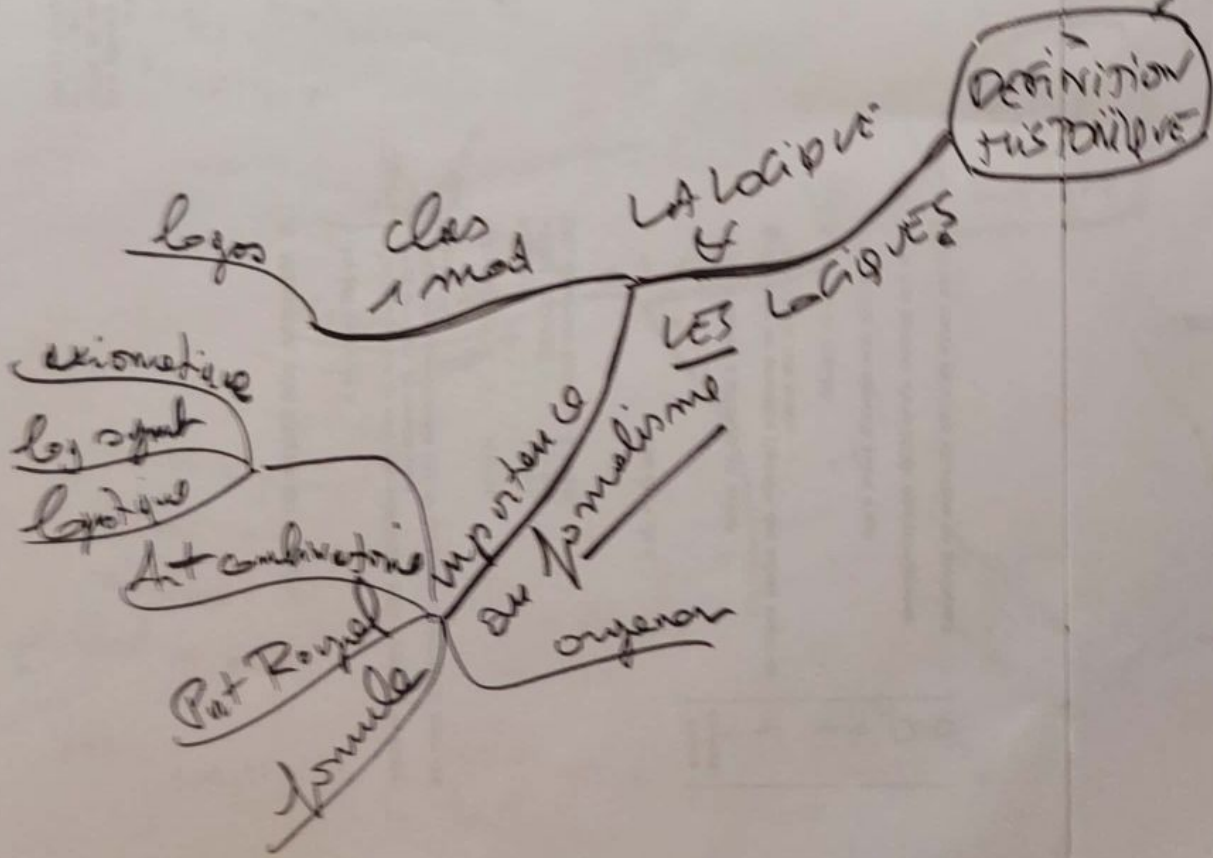 DEFINITION
HISTORIQUE
LA LOGIQUE
&
LES LOGIQUES
clas
1 mod
logos
importance
du formalisme
axiomatique
log symb
logistique
Art combinatoire
Port Royal
formule
organon